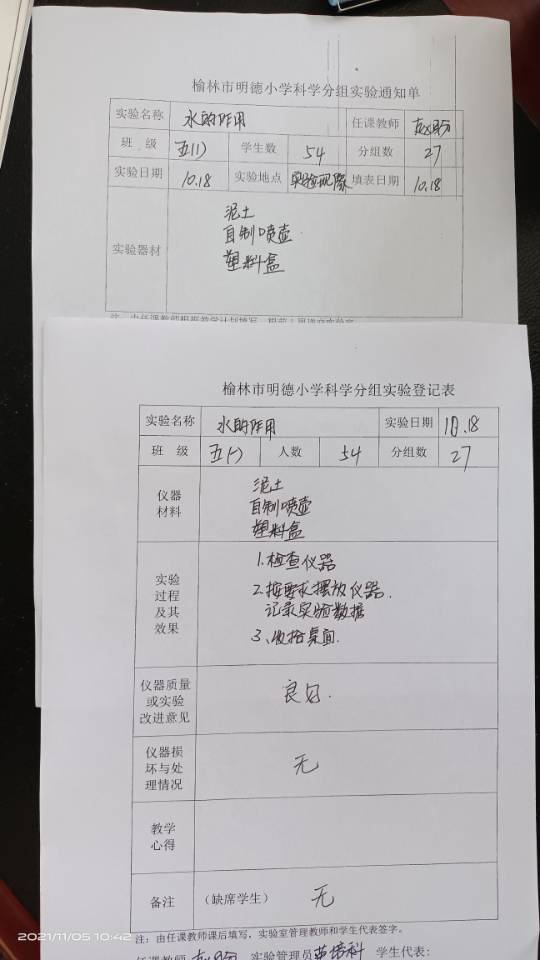 榆林市明德小学科学分组实验通知单
实验名称 水的作用 任课教师
班 级 五(1) 学生数 54 分组数 27
实验日期 10.18 实验地点 填表日期 10.18
实验器材
泥土
自制喷壶
塑料盒
榆林市明德小学科学分组实验登记表
实验名称 水的作用 实验日期 10.18
班 级 五(一) 人数 54 分组数 27
仪器
材料
泥土
自制喷壶
塑料盒
实验
过程
及其
效果
1.检查仪器
2.按要求摆放仪器.
记录实验数据
3、收拾桌面.
仪器质量
或实验
改进意见
良好.
仪器损
坏与处
理情况
无
教学
心得
备注 (缺席学生) 无
注:由任课教师课后填写,实验室管理教师和学生代表签字。
任课教师 实验管理员 学生代表:
2021/11/05 10:42